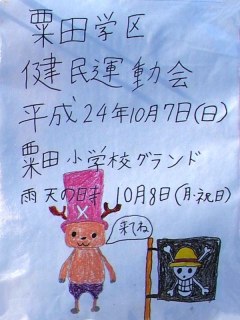 粟田学区
健民運動会
平成24年10月7日(日)
粟田小学校グランド
雨天の日時 10月8日(月・祝日)
来てね